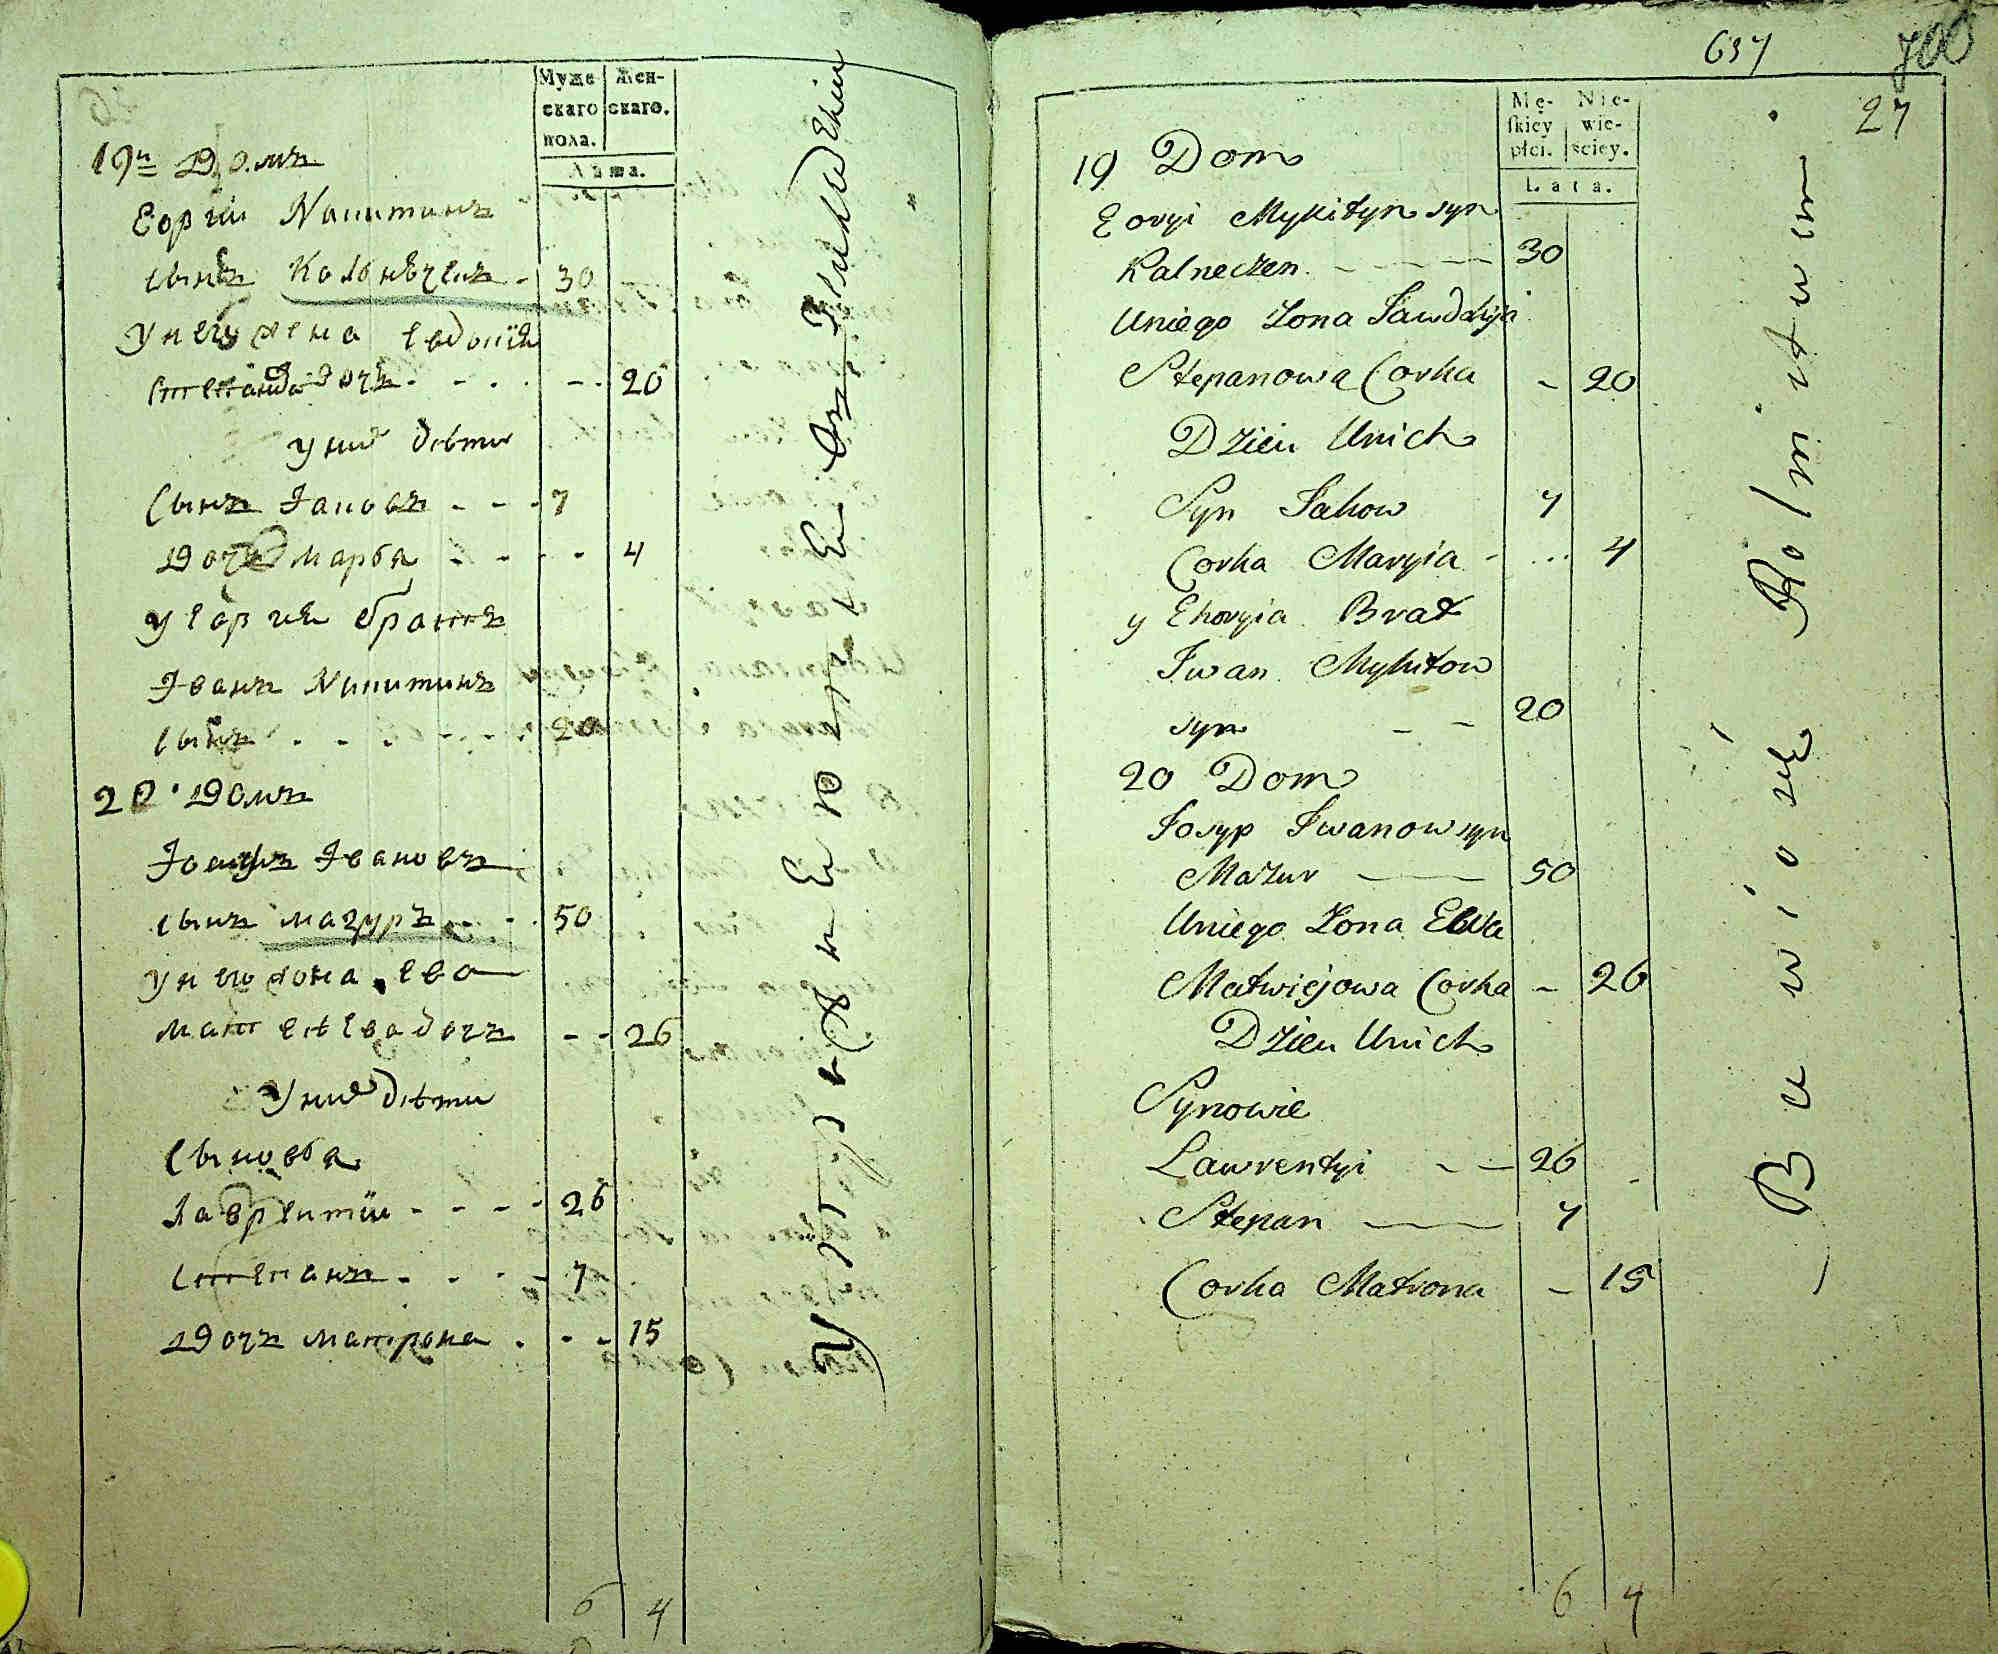 Муже Жен-
скаго скаго.
пола.
Лѣта.
19й Домъ
Еоргiи Никитинъ
сынъ Кольнѣченъ - 30
У него жена Евдокiя
Степанова дочъ - - 20
У них дѣти
Сынъ Iаковъ - - - 7
Дочъ Марья - - - - 4
У Еоргiя братъ
Iванъ Никитинъ
сынъ - - - - 20
20. Домъ
Iосипъ Iвановъ
сынъ Мазуръ - - 50
У него жона Ева
Матвѣева дочъ - - 26
У них дѣти
Сыновья
Лаврентiи - - - - 26
Степанъ - - - - 7
Дочъ Матрона - - - 15
6 4
637 700
27
Mę- Nie-
ſkiey wie-
płci. ściey.
Lata.
19 Dom
Eoryi Mykityn syn
Kalneczen - - - 30
Uniego Żona Jawdokija
Stepanowa Corka - 20
Dzieci Unich
Syn Jakow 7
Corka Maryia - ... 4
y Ehoryia Brat
Iwan Mykitow
syn - - 20
20 Dom
Josyp Iwanow syn
Mazur — 50
Uniego Żona Ewa
Matwiejowa Corka - 26
Dzieci Unich
Synowie
Lawrentyi - - 26
Stepan — 7
Corka Matrona - 15
6 4